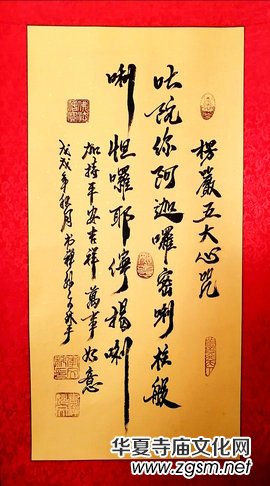 楞嚴五大心咒
叱陀你阿迦囉密唎柱般
唎怛囉耶儜揭唎
加持平安吉祥萬事如意
戊戌年秋月
华夏寺庙文化网
www.zgsm.net